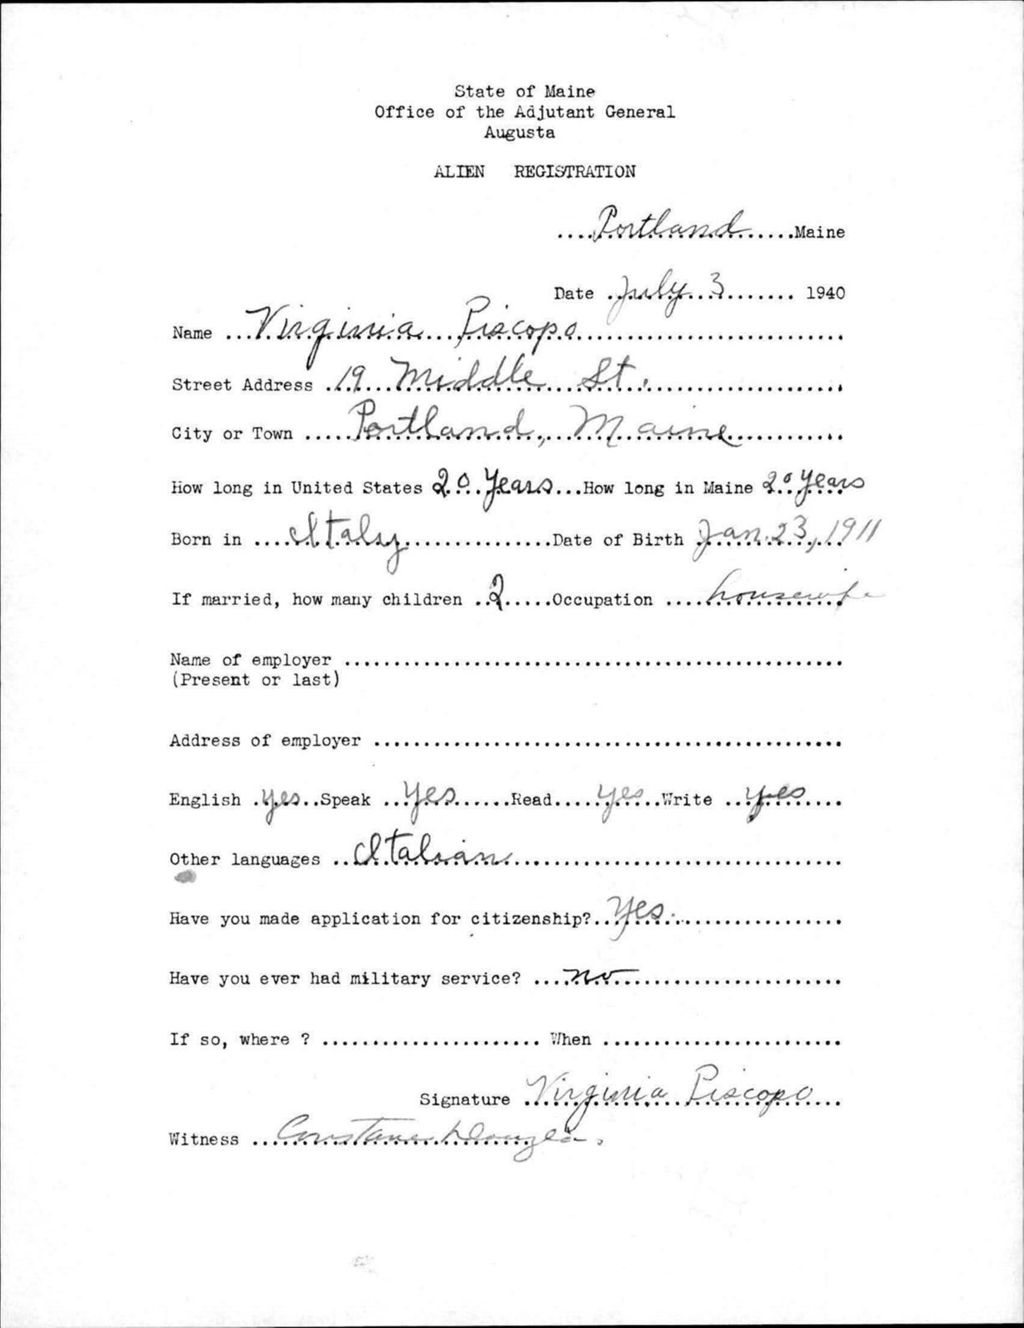 State of Maine
Office of the Adjutant General
Augusta
ALIEN REGISTRATION
....Portland.....Maine
Date ..July..3....... 1940
Name ...Virginia...Piscopo...........................
Street Address .19...Middle...St....................
City or Town .....Portland, Maine............
How long in United States 20 Years...How long in Maine 20 Years
Born in ....Italy...............Date of Birth Jan. 23, 1911
If married, how many children ..2.....Occupation ....housewife
Name of employer ..................................................
(Present or last)
Address of employer ...............................................
English .yes..Speak ...Yes......Read.....yes..Write ..yes....
Other languages ..Italian.................................
Have you made application for citizenship?..Yes.................
Have you ever had military service? ....no.....................
If so, where ? ...................... When ........................
Signature ..Virginia Piscopo...
Witness ..